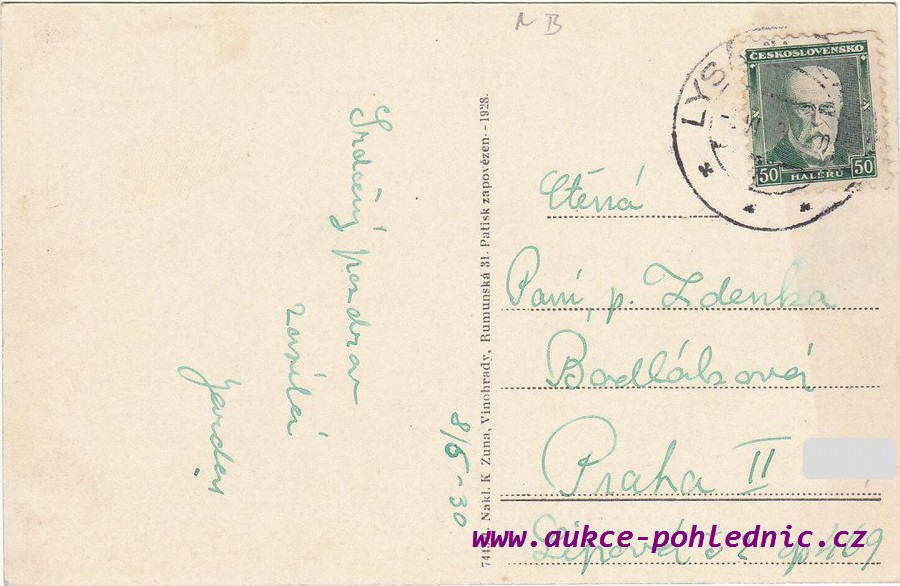 N B
ČESKOSLOVENSKO
50 HALÉŘŮ 50
LYSÁ
Srdečný pozdrav
zasílá
8/5 - 30
Nakl. K Zuna, Vinohrady, Rumunská 31. Patisk zapovězen.-1928.
Ctěná
Paní, p. Zdenka
Bodláková
Praha II
Lípová
www.aukce-pohlednic.cz